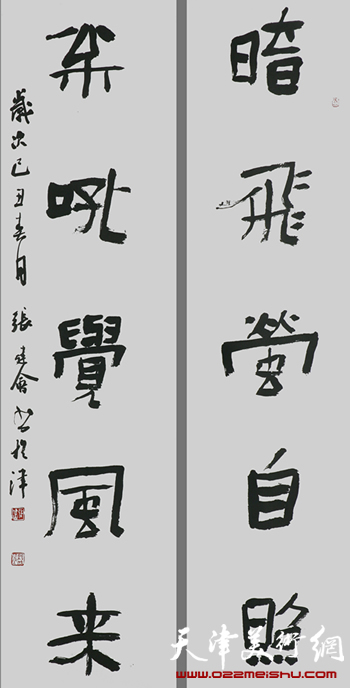 暗飛螢自照
覺風来
歲次己丑春月 張建會書於津
天津美術網
www.022meishu.com